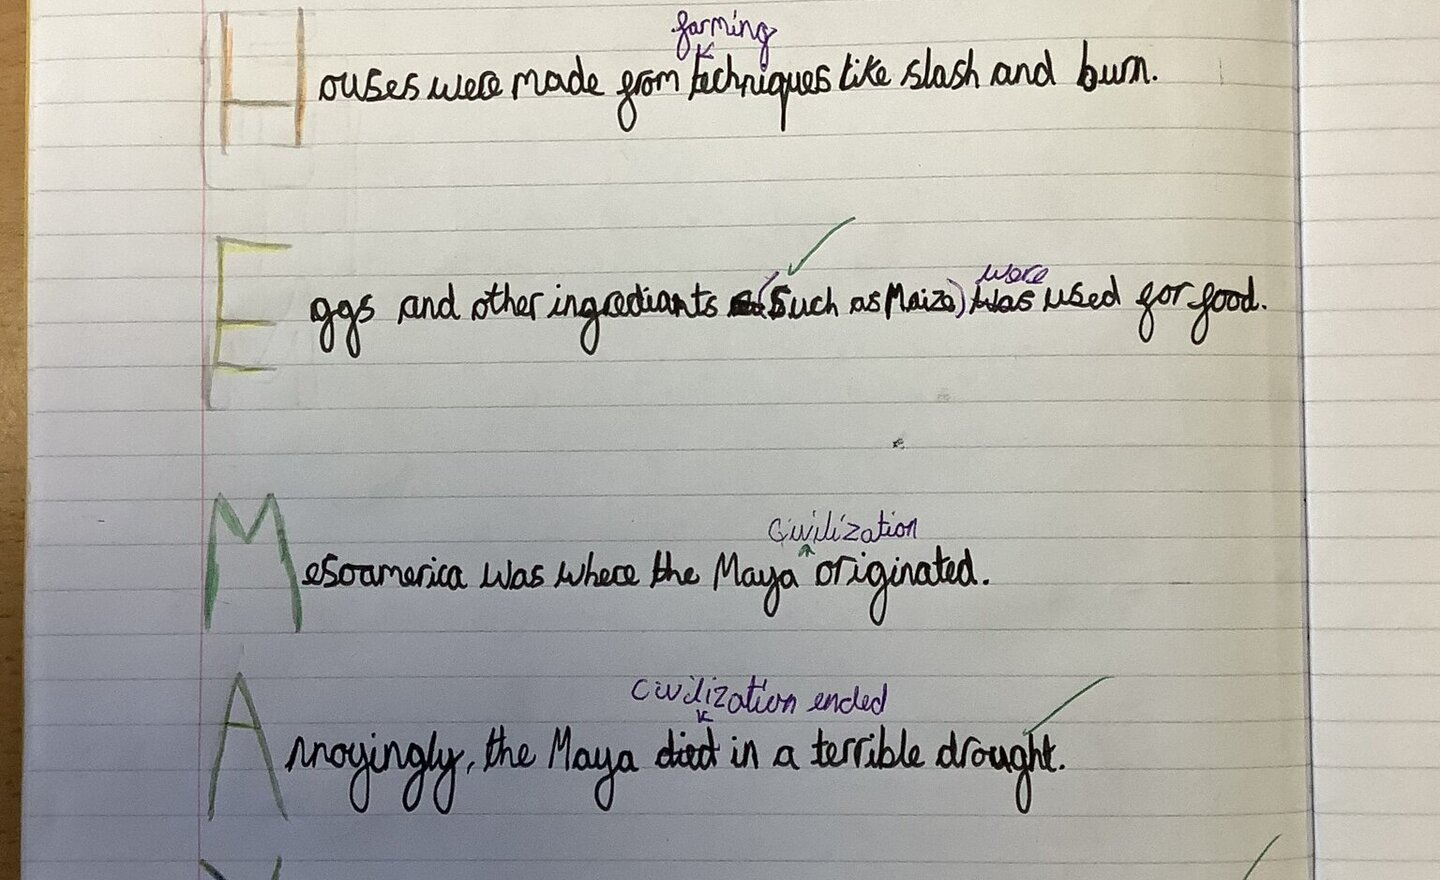 farming
Houses were made from techniques like slash and burn.
were
Eggs and other ingrediants (Such as Maize) was used for food.
Civilization
Mesoamerica was where the Maya originated.
Civilization ended
Annoyingly, the Maya died in a terrible drought.